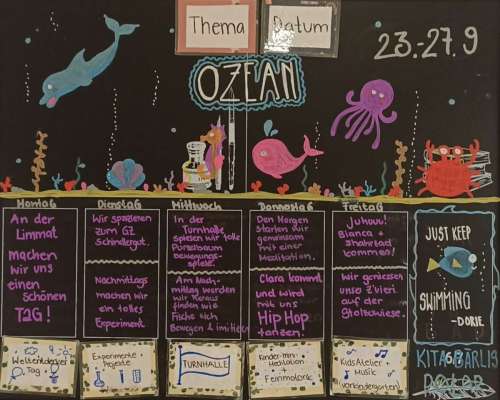 Thema
Datum
23.-27.9
OZEAN
Montag
Dienstag
Mittwoch
Donnerstag
Freitag
An der
Limmat
machen
wir uns
einen
schönen
TAG!
Wir spazieren
zum GZ
Schindlergut.
Nachmittags
machen wir
ein tolles
Experiment.
In der
Turnhalle
spielen wir tolle
Purzelbaum
bewegungs-
spiele.
Am Nach-
mittag werden
wir heraus
finden wie
Fische sich
bewegen & imitieren
Den Morgen
starten wir
gemeinsam
mit einer
Meditation.
Clara kommt
und wird
mit uns
Hip Hop
tanzen!
Juhuu!
Bianca +
Shahrzad
kommen!
Wir geniessen
unser Zvieri
auf der
JUST KEEP
SWIMMING
- DORIE.
KITA GBÄRLIS
Weltentdecker
Tag
Experimente +
Projekte
TURNHALLE
Kinder-
Meditation
+
Feinmotorik
Kids Atelier +
Musik
(Vorkindergarten)